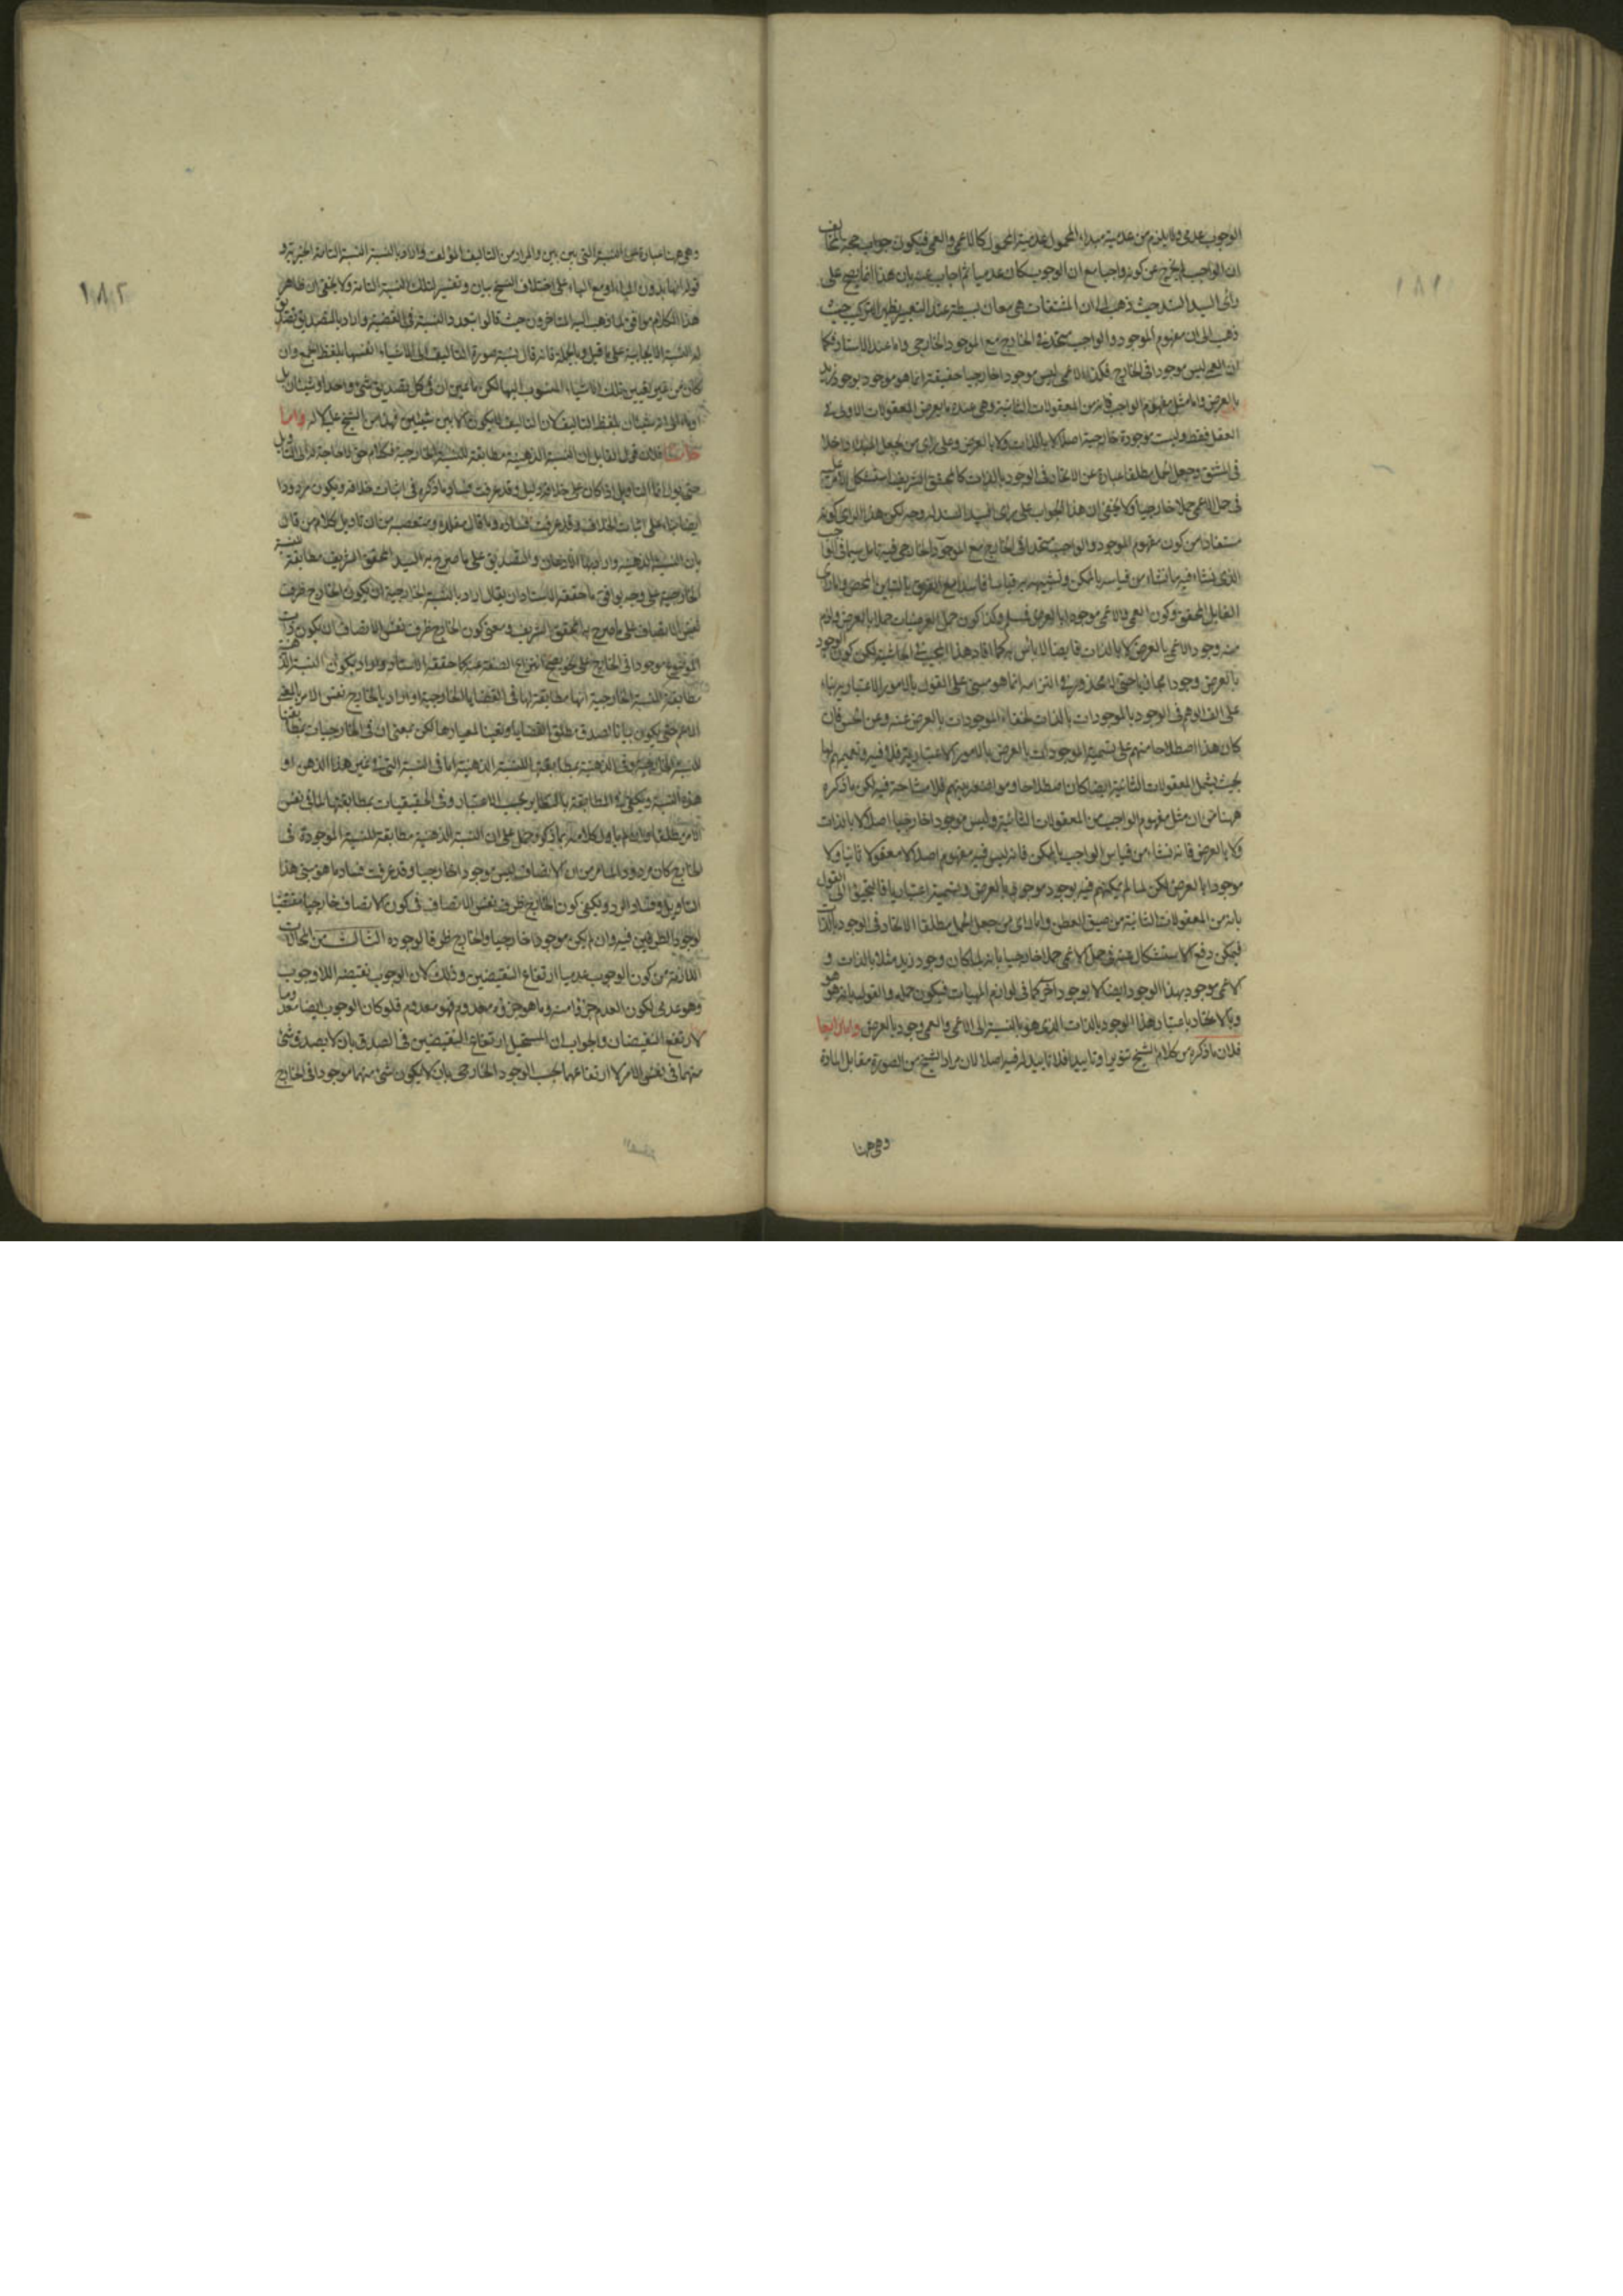 ١٨١
الوجوب عدمي ولا يلزم من عدمية مبداء المحمول عدمية المحمول كالاعمى والعمى فيكون جواب حجة المخالف
ان الواجب لم يخرج عن كونه واجبا مع ان الوجوب كان عدميا ثم اجاب عنه بان هذا انما يصح على
رائ السيد السند حيث ذهب الى ان المشتقات هي معان بسيطة عند التعبير يظهر التركيب حيث
ذهب الى ان مفهوم الموجود والواجب متحدة في الخارج مع الموجود الخارجي واما عند الاستاد فكما
ان العمى ليس موجودا في الخارج فكذا الاعمى ليس موجودا خارجيا حقيقة انما هو موجود بوجود زيد
بالعرض واما مثل مفهوم الواجب فانه من المعقولات الثانية وهي عنده ما يعرض المعقولات الاولى في
العقل فقط وليست موجودة خارجية اصلا لا بالذات ولا بالعرض وعلى راى من يجعل المبداء داخلا
في المشتق ويجعل الحمل مطلقا عبارة عن الاتحاد في الوجود بالذات كالمحقق الشريف استشكل الامر عليه
في حمل الاعمى حملا خارجيا ولا يخفى ان هذا الجواب على راى السيد السند له وجه لكن هذا الراى كونه
مستفادا من كون مفهوم الموجود والواجب متحدا في الخارج مع الموجود الخارجي فيه تامل سيما في الواجب
الذي نشاء فيه ما نشاء من قياسه بالممكن وتشبيهه به قياسا فاسدا مع الفرق بالتباين المحض واما راى
القايل المحقق وكون العمى والاعمى موجودا بالعرض فمسلم وكذا كون حمل العرضيات حملا بالعرض ولازم
منه وجود الاعمى بالعرض لا بالذات فايضا لا باس به كما افاد هذا المجيب في الحاشية لكن كون الوجود
بالعرض وجودا مجازيا حتى لا محذور في التزامه انما هو مبني على القول بالامور الاعتبارية بناء
على الف الوهم في الوجود بالموجودات بالذات لخفاء الموجودات بالعرض عنه وعن الحس فان
كان هذا اصطلاحا منهم على تسمية الموجودات بالعرض بالامور الاعتبارية فلا فيه وتعميمهم لها
بحيث يشمل المعقولات الثانية ايضا كان اصطلاحا ومواضعة بينهم فلا مشاحة فيه لكن ما ذكره
ههنا من ان مثل مفهوم الواجب من المعقولات الثانية وليس موجودا خارجيا اصلا لا بالذات
ولا بالعرض فانه نشاء من قياس الواجب بالممكن فانه ليس فيه مفهوم اصلا لا معقولا ثانيا ولا
موجودا بالعرض لكن لما لم يمكنهم فيه بوجود موجودها بالعرض وتسميته اعتباريا فالتجئوا الى القول
بانه من المعقولات الثانية من ضيق العطن واما راى من جعل الحمل مطلقا الاتحاد في الوجود بالذات
فيمكن دفع الاستشكال عنه في حمل الاعمى حملا خارجيا بانه لما كان وجود زيد مثلا بالذات و
الاعمى موجود بهذا الوجود ايضا لا بوجود آخر كما في لوازم المهيات فيكون حمله والقول بانه هو هو
وبالاتحاد باعتبار هذا الوجود بالذات الذي هو بالنسبة الى الاعمى والعمى وجود بالعرض واما رابعا
فلان ما ذكره من كلام الشيخ تنويرا وتاييدا فلا تاييد له فيه اصلا لان مراد الشيخ من الصورة مقابل المادة
وهي ههنا
١٨٢
وهي ههنا عبارة عن النسبة التي بين بين والمراد من التاليف المؤلف واراد بالنسبة النسبة التامة الخبرية و
قوله ايها بدون الهاء او مع الهاء على اختلاف النسخ بيان وتفسير لتلك النسبة التامة ولا يخفى ان ظاهر
هذا الكلام موافق لما ذهب اليه المتاخرون حيث قالوا بتعدد النسبة في القضية واراد بالتصديق تصديق
له النسبة الايجابية على ما قيل وبالجملة فانه قال نسبة صورة التاليف الى الاشياء انفسها بلفظ الجمع وان
كان من غير تعيين تلك الاشياء المنسوب اليها لكن ما عين ان في كل تصديق شئ واحد او شيئان بل
اوماء الى انه شيئان بلفظ التاليف لان التاليف لا يكون الا بين شيئين فهذا من الشيخ عليه لا له واما
خامسا فلان قول القايل ان النسبة الذهنية مطابقة للنسبة الخارجية فكلام حق لا حاجة له الى التاويل
حتى يول انما التاويل اذا كان على خلافه دليل وقد عرفت فساد ما ذكره في اثبات خلافه ويكون مردودا
ايضا بناء على اثبات الخلاف وقد عرفت فساده وما قال مقلده ومتعصبه من ان تاويل كلام من قال
بان النسبة الذهنية واراد بها الاذعان والتصديق على ما صرح به السيد المحقق الشريف مطابقة للنسبة
الخارجية على وجه يوافق ما حققه الاستاد ان يقال اراد بالنسبة الخارجية ان يكون الخارج ظرف
لنفس الاتصاف على ما صرح به المحقق الشريف ومعنى كون الخارج ظرف نفس الاتصاف ان يكون ذات
الموضوع موجودا في الخارج على نحو يصح انتزاع الصفة عنه كما حققه الاستاد واراد بكون النسبة الذهنية
مطابقة للنسبة الخارجية انها مطابقة لها في القضايا الخارجية او اراد بالخارج نفس الامر بالمعنى
الاعم حتى يكون بيانا لصدق مطلق القضايا وتعيينا لمعيارها لكن بمعنى ان في الخارجيات بمطابقتها
للنسبة الخارجية وفي الذهنية بمطابقتها للنسبة الذهنية اما في النسبة التي في غير هذا الذهن او
هذه النسبة ويكفي له المطابقة بالتغاير بحسب الاعتبار وفي الحقيقيات بمطابقتها لما في نفس
الامر مطلقا وان لم ياول كلامه بما ذكر وحمل على ان النسبة الذهنية مطابقة للنسبة الموجودة في
الخارج كان مردودا لما مر من ان الاتصاف ليس موجودا خارجيا وقد عرفت فساد ما هو مبنى هذا
التاويل وفساد الرد ويكفي كون الخارج ظرف نفس الاتصاف في كون الاتصاف خارجيا مقتضيا
لوجود الطرفين فيه وان لم يكن موجودا خارجيا والخارج ظرفا لوجوده الثالث من المحالات
اللازمة من كون الوجوب عدميا ارتفاع النقيضين وذلك لان الوجوب نقيضه اللاوجوب
وهو عدمي لكون العدم جزءا منه وما هو جزءه معدوم فهو معدوم فلو كان الوجوب ايضا معدوما
لارتفع النقيضان والجواب ان المستحيل ارتفاع النقيضين في الصدق بان لا يصدق شئ
منهما في نفس الامر لا ارتفاعهما بحسب الوجود الخارجي بان لا يكون شئ منهما موجودا في الخارج